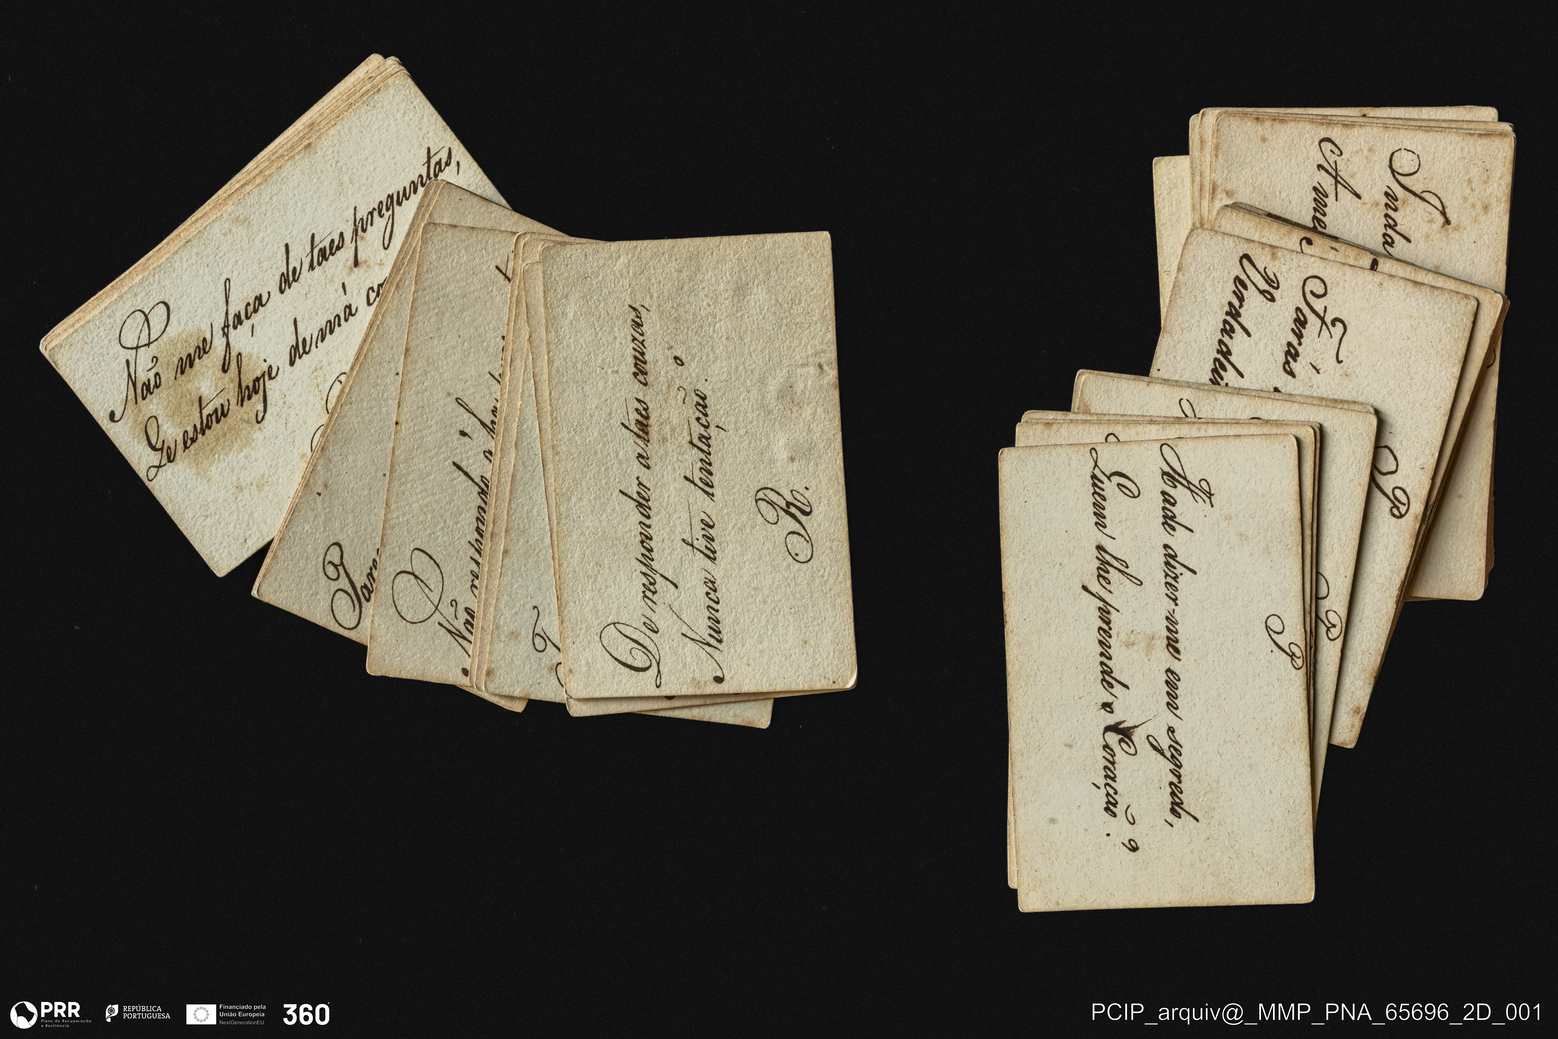 Não me faça de taes preguntas,
Qe estou hoje de má
Não respondo á
De responder a taes couzas,
Nunca tive tentação.
R.
Inda
Amei
Farás
Verdadei
P
P
Hade dizer-me em segredo,
Quem lhe prende o Coração?
P.
PRR
Plano de Recuperação
e Resiliência
REPÚBLICA
PORTUGUESA
Financiado pela
União Europeia
NextGenerationEU
360
PCIP_arquiv@_MMP_PNA_65696_2D_001